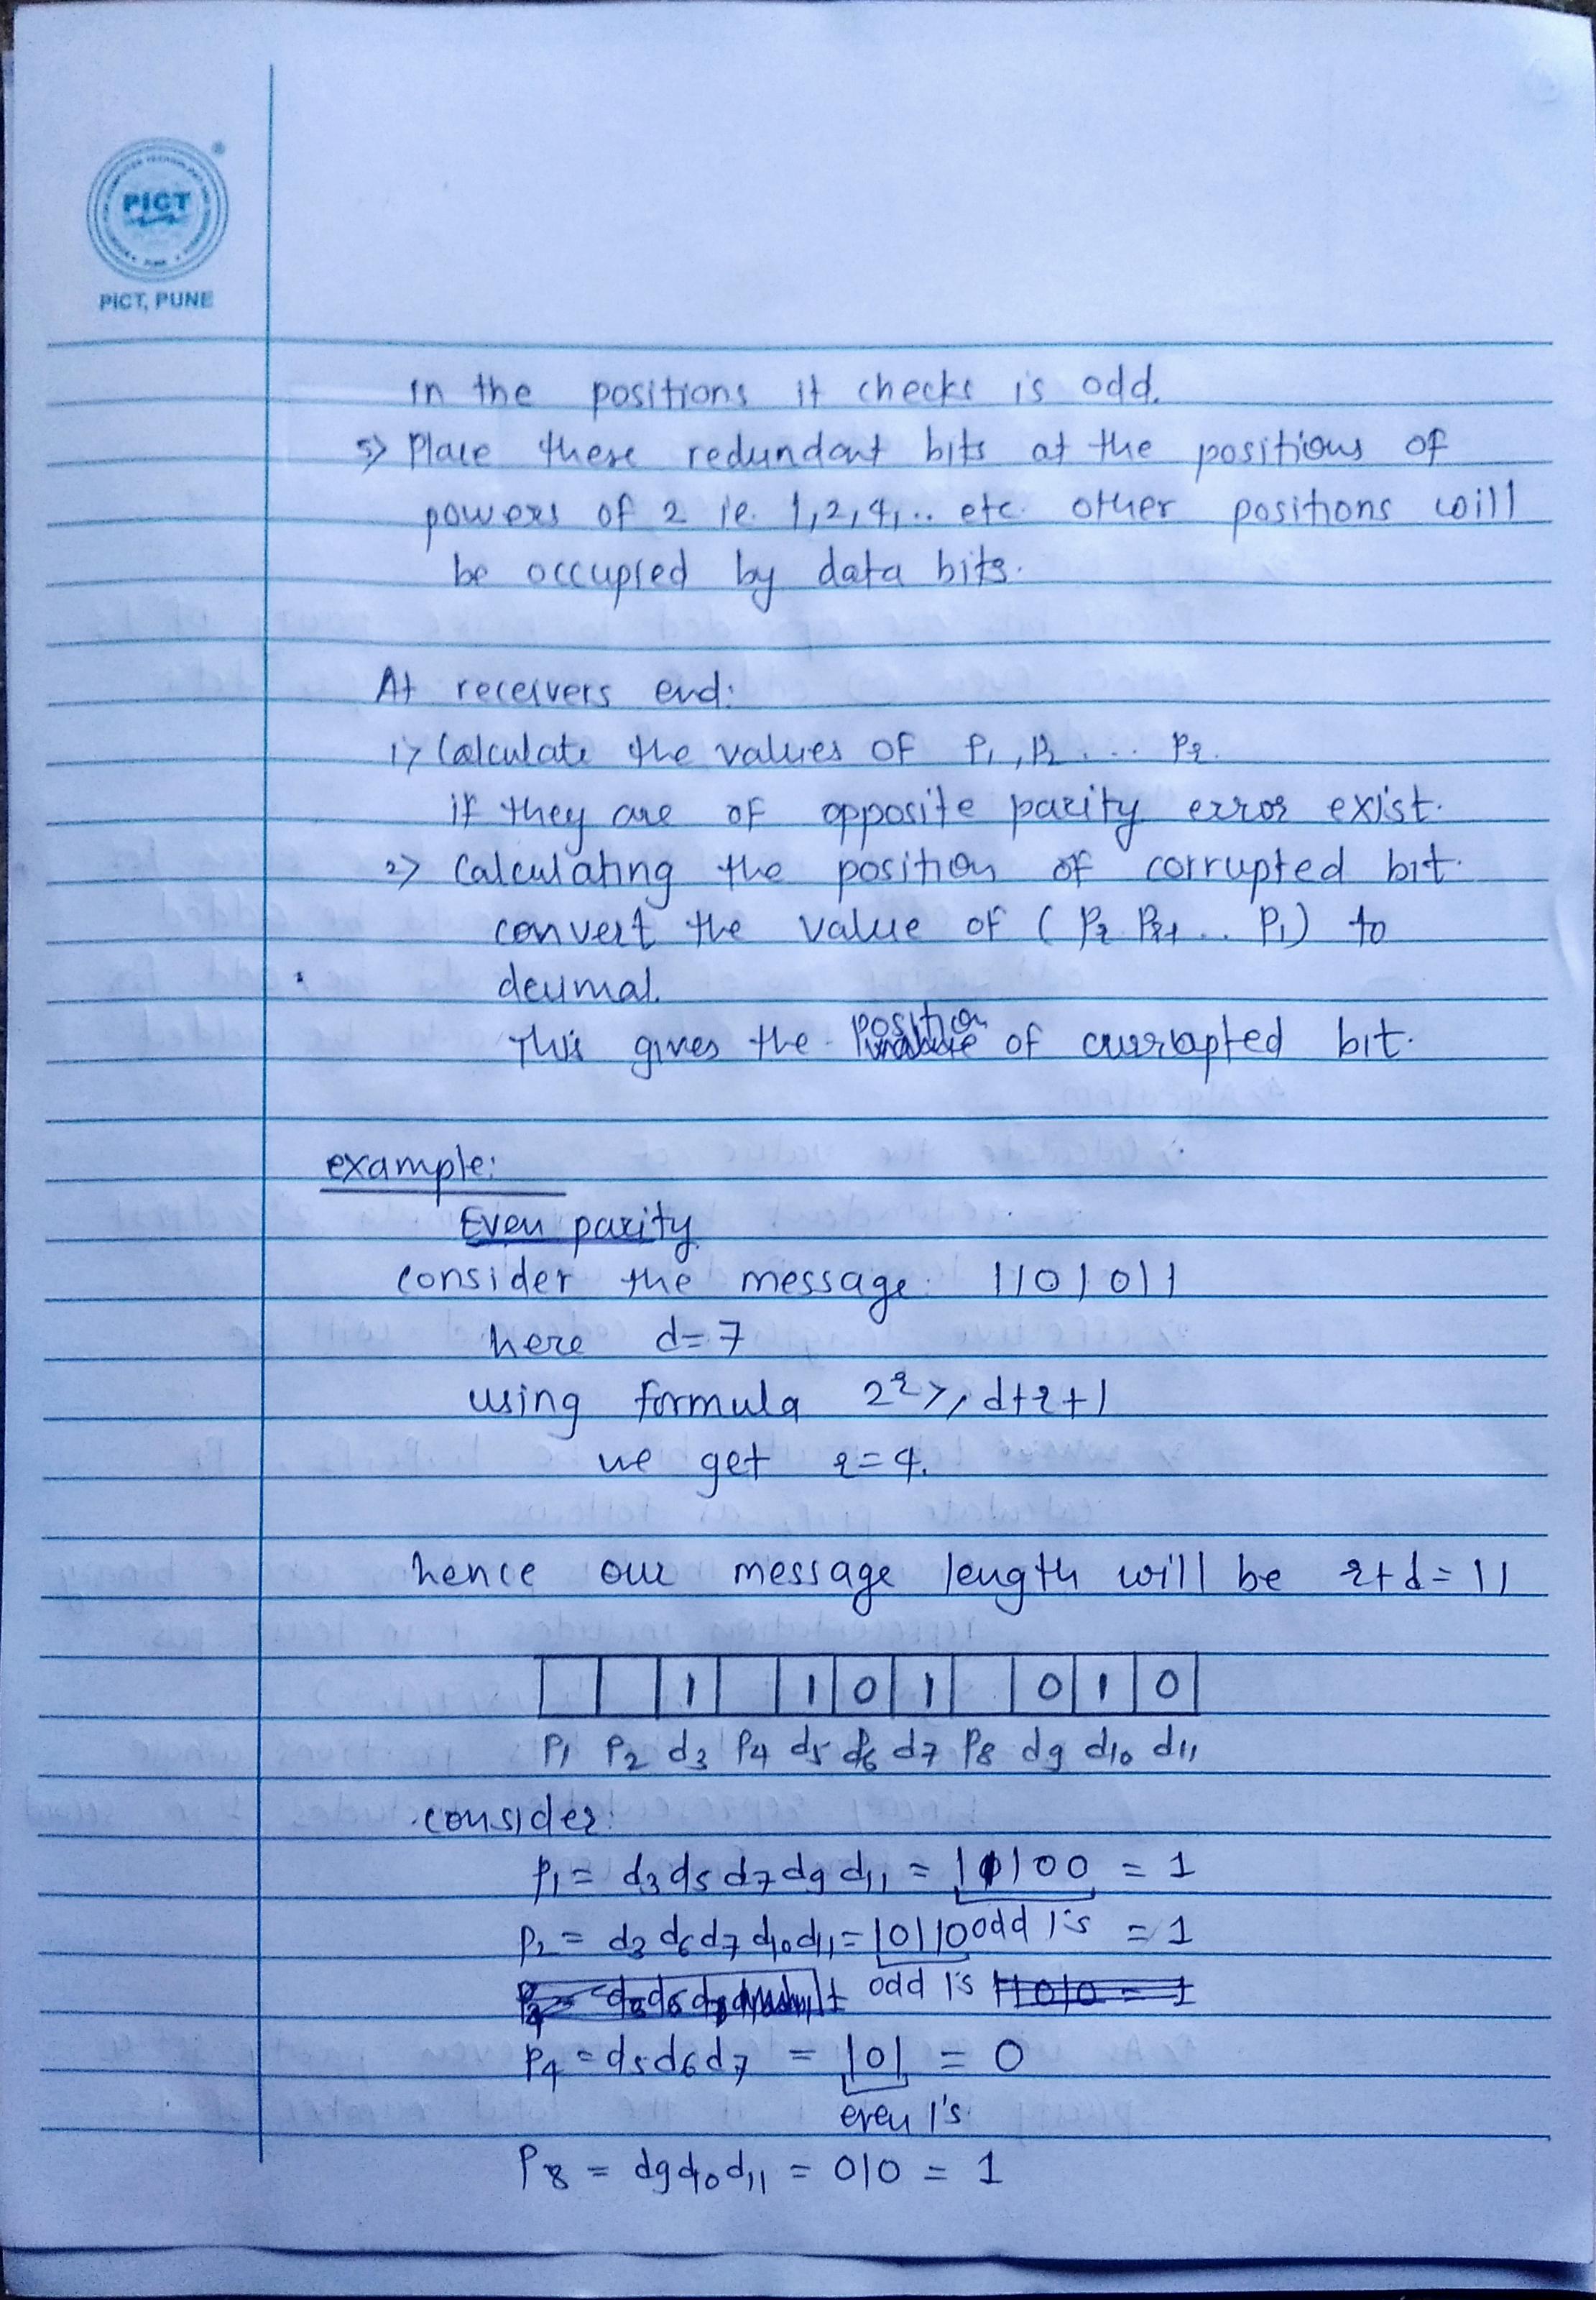 PICT
PICT, PUNE
in the positions it checks is odd.
5> Place these redundant bits at the positions of
powers of 2 ie. 1,2,4,.. etc. other positions will
be occupied by data bits.
At receivers end:
1> Calculate the values of P1, P2 ... Pr.
if they are of opposite parity error exist.
2> Calculating the position of corrupted bit.
convert the value of ( Pr Pr-1 .. P1) to
decimal.
This gives the position of currupted bit.
example:
Even parity
consider the message: 1101011
here d=7
using formula 2^r >= d+r+1
we get r=4.
hence our message length will be r+d=11
1 1 0 1 0 1 0
P1 P2 d3 P4 d5 d6 d7 P8 d9 d10 d11
consider:
P1 = d3 d5 d7 d9 d11 = 11100 = 1
odd 1's
P2 = d3 d6 d7 d10 d11 = 10110 = 1
odd 1's
P4 = d5 d6 d7 = 101 = 0
even 1's
P8 = d9 d10 d11 = 010 = 1